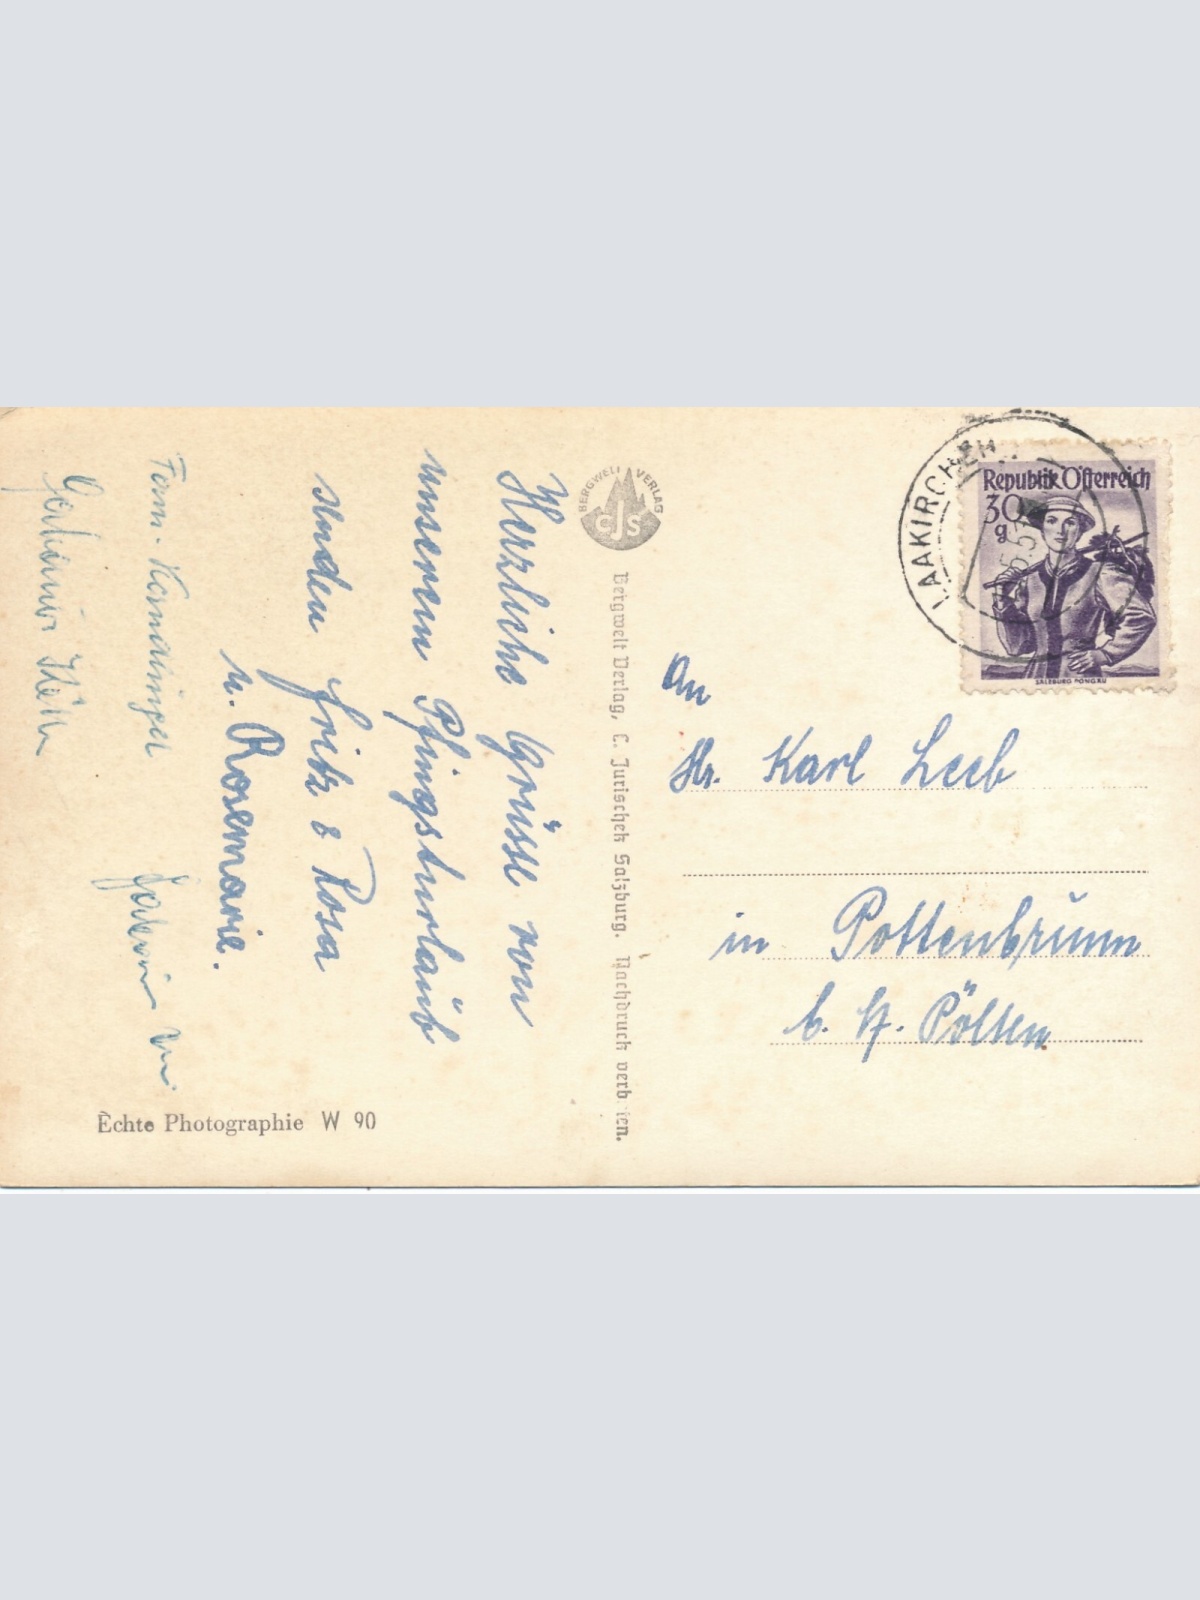 Herzliche Grüsse von
unserem Pfingsturlaub
senden Fritz & Rosa
u. Rosemarie.
Fam.
BERGWELT VERLAG
CJS
Bergwelt Verlag, C. Jurischek Salzburg. Nachdruck verb
Echte Photographie W 90
LAAKIRCHEN
Republik Österreich
30
g
SALZBURG PONGAU
An
Hr. Karl Leeb
in Pottenbrunn
b. St. Pölten